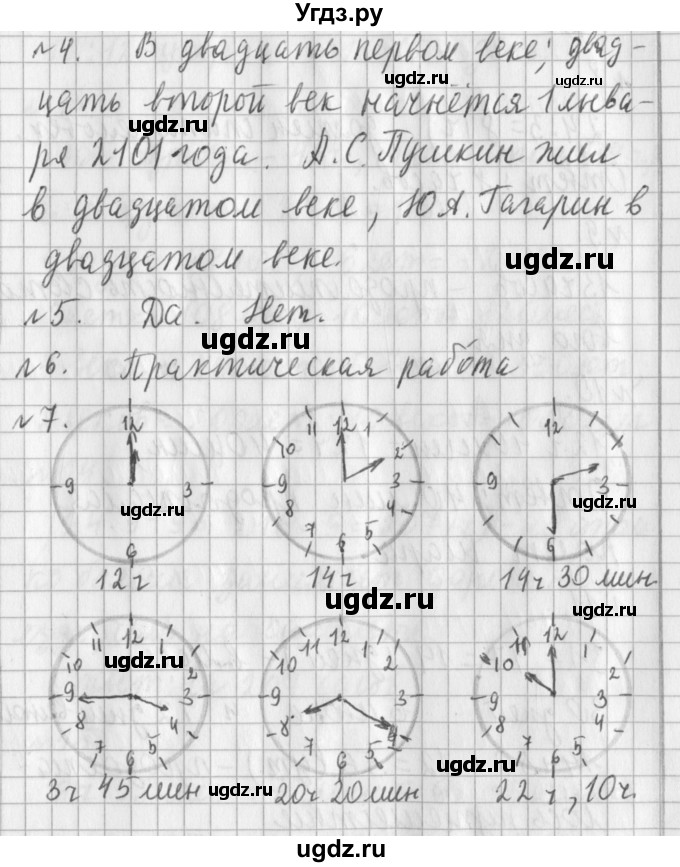 Угдз.ру
№4. В двадцать первом веке; двад-
ugdz.ru
цать второй век начнётся 1 янва-
ugdz.ru
ря 2101 года. А.С.Пушкин жил
в двадцатом веке, Ю.А.Гагарин в
двадцатом веке.
ugdz.ru
№5. Да. Нет.
ugdz.ru
№6. Практическая работа
№7.
12 3 6 9
ugdz.ru
12 1 2 3 4 5 6 7 8 9 10 11
ugdz.ru
12 3 6
ugdz.ru
12 ч 14 ч 14 ч 30 мин.
ugdz.ru ugdz.ru
12 1 2 3 4 5 6 7 8 9 10 11
ugdz.ru
12 1 2 3 4 5 6 7 8 9 10 11
ugdz.ru
12 1 2 3 4 5 6 7 8 9 10 11
ugdz.ru
3 ч 45 мин 20 ч 20 мин 22 ч, 10 ч.
ugdz.ru ugdz.ru
ugdz.ru